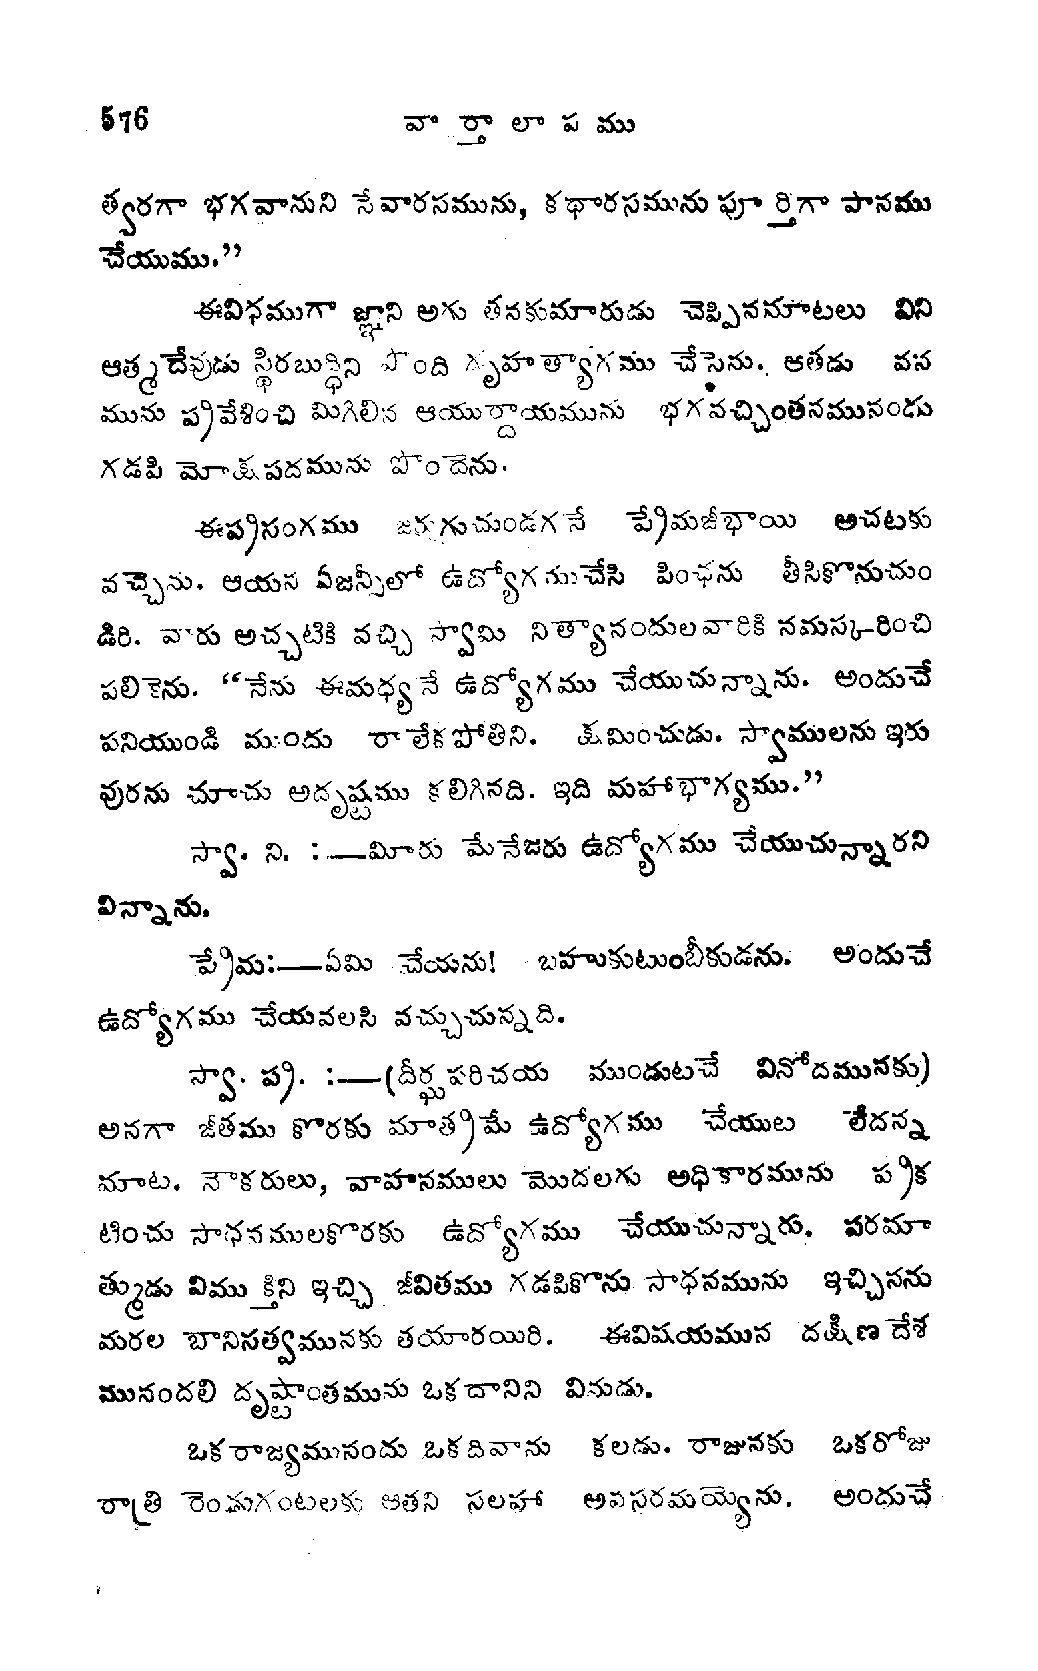 576 వా ర్తా లా ప ము
త్వరగా భగవానుని సేవారసమును, కథారసమును పూర్తిగా పానము
చేయుము.”
ఈవిధముగా జ్ఞాని అగు తనకుమారుడు చెప్పినమాటలు విని
ఆత్మదేవుడు స్థిరబుద్ధిని పొంది గృహత్యాగము చేసెను. ఆతడు వన
మును ప్రవేశించి మిగిలిన ఆయుర్దాయమును భగవచ్చింతనమునందు
గడపి మోక్షపదమును పొందెను.
ఈప్రసంగము జరుగుచుండగనే ప్రేమజీభాయి అచటకు
వచ్చెను. ఆయన ఏజన్సీలో ఉద్యోగముచేసి పింఛను తీసికొనుచుం
డిరి. వారు అచ్చటికి వచ్చి స్వామి నిత్యానందులవారికి నమస్కరించి
పలికెను. “నేను ఈమధ్యనే ఉద్యోగము చేయుచున్నాను. అందుచే
పనియుండి ముందు రాలేకపోతిని. క్షమించుడు. స్వాములను ఇరు
వురను చూచు అదృష్టము కలిగినది. ఇది మహాభాగ్యము.”
స్వా. ని. :—మీరు మేనేజరు ఉద్యోగము చేయుచున్నారని
విన్నాను.
ప్రేమ:—ఏమి చేయను! బహుకుటుంబీకుడను. అందుచే
ఉద్యోగము చేయవలసి వచ్చుచున్నది.
స్వా. ప్ర. :—(దీర్ఘపరిచయ ముండుటచే వినోదమునకు)
అనగా జీతము కొరకు మాత్రమే ఉద్యోగము చేయుట లేదన్న
మాట. నౌకరులు, వాహనములు మొదలగు అధికారమును ప్రక
టించు సాధనములకొరకు ఉద్యోగము చేయుచున్నారు. పరమా
త్ముడు విముక్తిని ఇచ్చి జీవితము గడపికొను సాధనమును ఇచ్చినను
మరల బానిసత్వమునకు తయారయిరి. ఈవిషయమున దక్షిణదేశ
మునందలి దృష్టాంతమును ఒకదానిని వినుడు.
ఒకరాజ్యమునందు ఒకదివాను కలడు. రాజునకు ఒకరోజు
రాత్రి రెండుగంటలకు ఆతని సలహా అవసరమయ్యెను. అందుచే